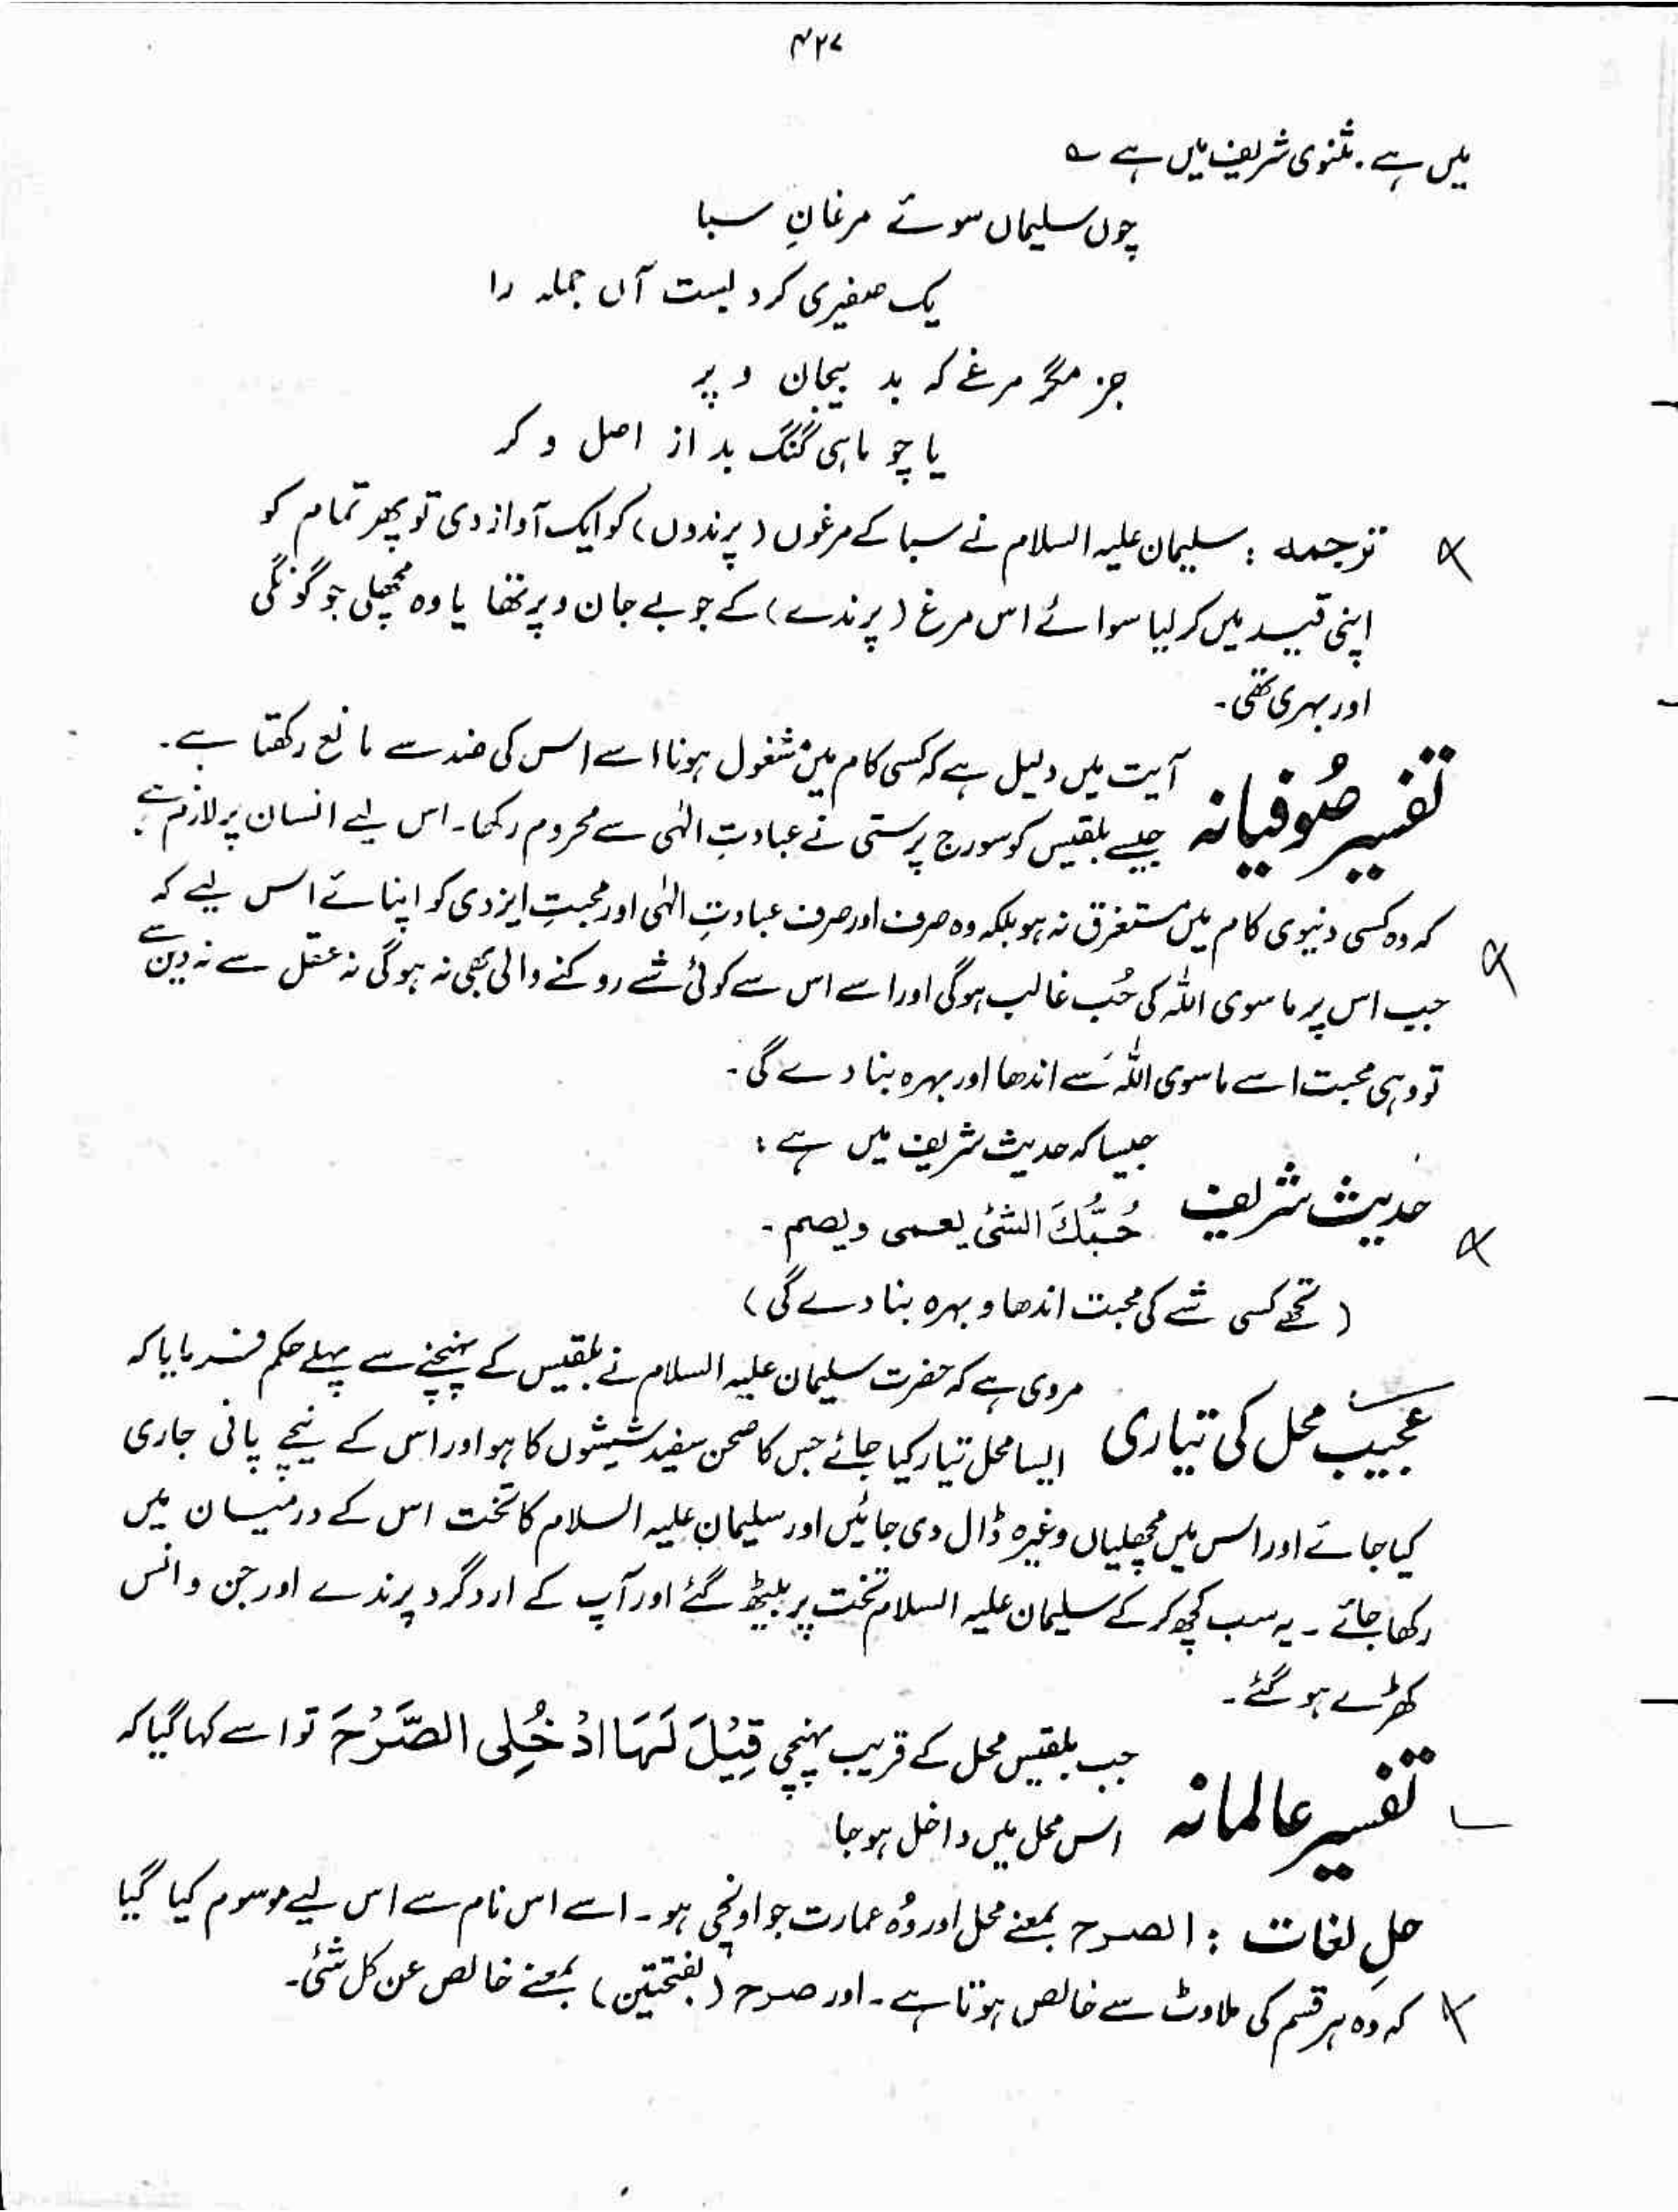 ۴۲۷
میں ہے۔ مثنوی شریف میں ہے ؎
چوں سلیماں سوئے مرغانِ سبا
یک صفیری کرد لبست آں جملہ را
جز مگر مرغے کہ بد بیجان و پر
یا چو ماہی گنگ بد از اصل و کر
ترجمہ : سلیمان علیہ السلام نے سبا کے مرغوں (پرندوں) کو ایک آواز دی تو پھر تمام کو
اپنی قید میں کر لیا سوائے اس مرغ (پرندے) کے جو بے جان و پر تھا یا وہ مچھلی جو گونگی
اور بہری تھی۔
تفسیر صُوفیانہ آیت میں دلیل ہے کہ کسی کام میں مشغول ہونا اسے اس کی ضد سے مانع رکھتا ہے۔
جیسے بلقیس کو سورج پرستی نے عبادتِ الٰہی سے محروم رکھا۔ اس لیے انسان پر لازم ہے
کہ وہ کسی دنیوی کام میں مستغرق نہ ہو بلکہ وہ صرف اور صرف عبادتِ الٰہی اور محبتِ ایزدی کو اپنائے اس لیے کہ
جب اس پر ماسوی اللہ کی حُب غالب ہوگی اور اسے اس سے کوئی شے روکنے والی بھی نہ ہوگی نہ عقل سے نہ دین سے
تو وہی محبت اسے ماسوی اللہ سے اندھا اور بہرہ بنا دے گی۔
جیسا کہ حدیث شریف میں ہے :
حدیث شریف حُبُّكَ الشئ یعمی ویصم۔
(تجھے کسی شے کی محبت اندھا و بہرہ بنا دے گی)
عجیب محل کی تیاری مروی ہے کہ حضرت سلیمان علیہ السلام نے بلقیس کے پہنچنے سے پہلے حکم فرمایا کہ
ایسا محل تیار کیا جائے جس کا صحن سفید شیشوں کا ہو اور اس کے نیچے پانی جاری
کیا جائے اور اس میں مچھلیاں وغیرہ ڈال دی جائیں اور سلیمان علیہ السلام کا تخت اس کے درمیان میں
رکھا جائے۔ یہ سب کچھ کر کے سلیمان علیہ السلام تخت پر بیٹھ گئے اور آپ کے اردگرد پرندے اور جن و انس
کھڑے ہو گئے۔
تفسیر عالمانہ جب بلقیس محل کے قریب پہنچی قِيْلَ لَهَا ادْخُلِی الصَّرْحَ تو اسے کہا گیا کہ
اس محل میں داخل ہو جا
حلِ لغات : الصرح بمعنے محل اور وُہ عمارت جو اونچی ہو۔ اسے اس نام سے اس لیے موسوم کیا گیا
کہ وُہ ہر قسم کی ملاوٹ سے خالص ہوتا ہے۔ اور صرح (بفتحتین) بمعنے خالص عن کل شئ۔